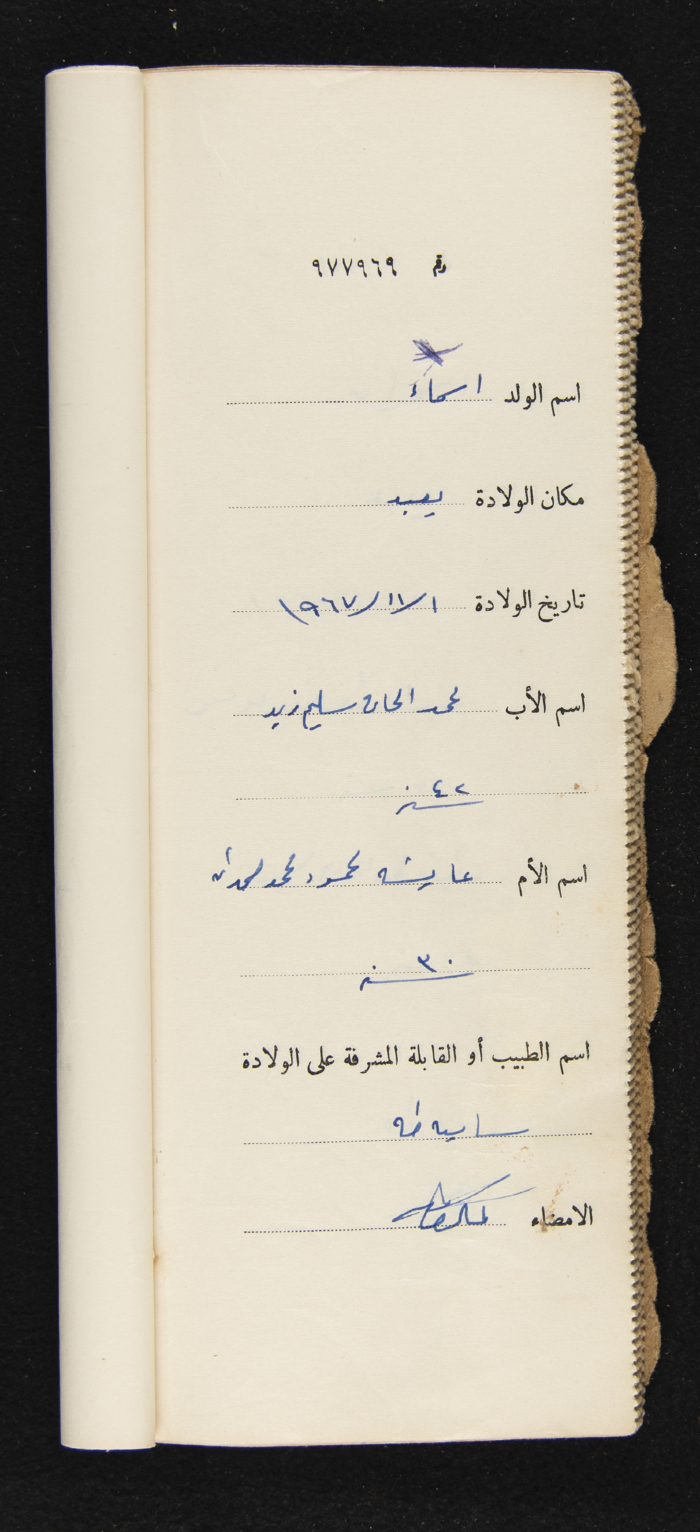 رقم ٩٧٧٩٦٩
اسم الولد اسماء
مكان الولادة يعبد
تاريخ الولادة ١/١١/١٩٦٧
اسم الأب محمد الحاج سليم زيد
٤٢ سنه
اسم الأم عايشه محمود محمد
٣٠ سنه
اسم الطبيب أو القابلة المشرفة على الولادة
ساميه طه
الامضاء